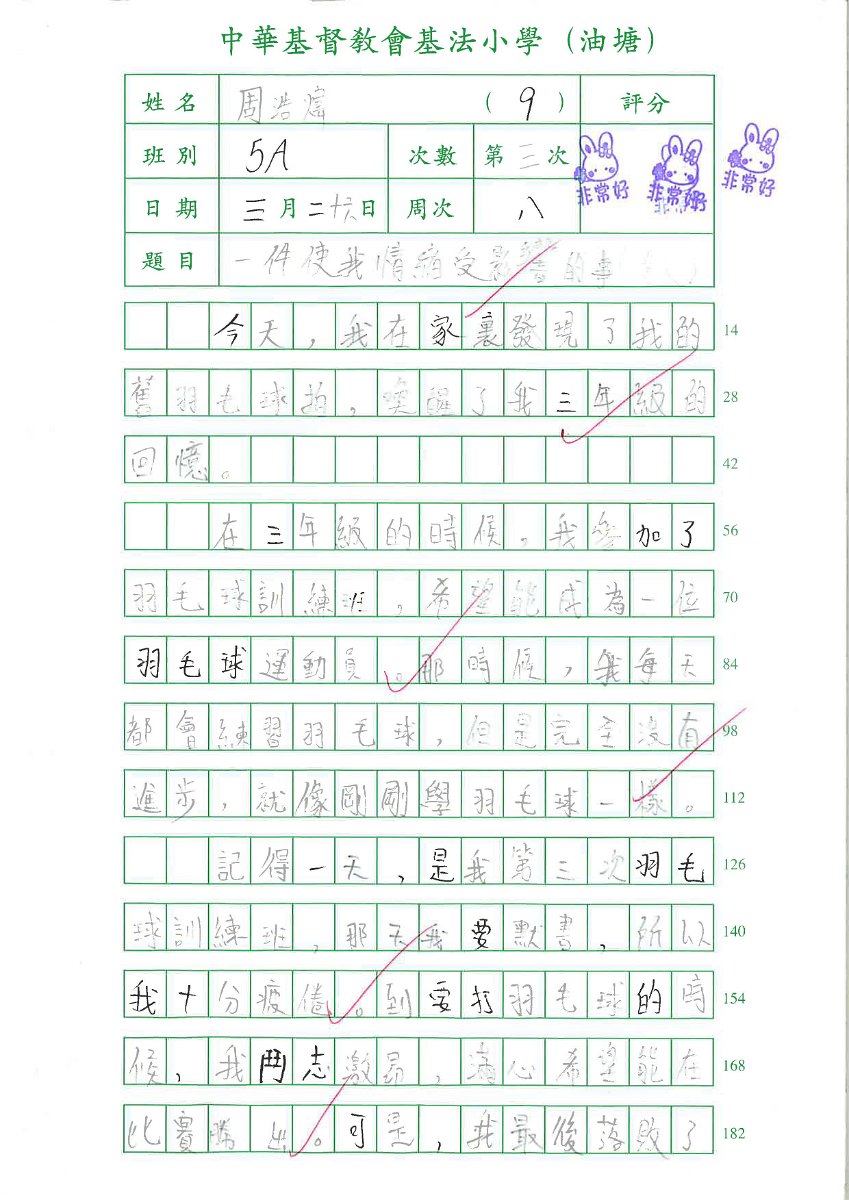 中華基督教會基法小學（油塘）
姓名 周浩 （9） 評分
班別 5A 次數 第三次
非常好 非常好 非常好
日期 三月二十六日 周次 八
題目 一件使我情緒受影響的事
今天，我在家裏發現了我的 14
舊羽毛球拍，喚醒了我三年級的 28
回憶。 42
在三年級的時候，我參加了 56
羽毛球訓練班，希望能成為一位 70
羽毛球運動員。那時候，我每天 84
都會練習羽毛球，但是完全沒有 98
進步，就像剛剛學羽毛球一樣。 112
記得一天，是我第三次羽毛 126
球訓練班，那天我要默書，所以 140
我十分疲倦。到要打羽毛球的時 154
候，我鬥志激昂，滿心希望能在 168
比賽勝出。可是，我最後落敗了 182